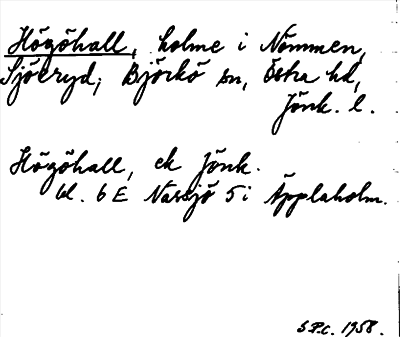 Högöhall, holme i Nömmen,
Sjöeryd; Björkö sn, Östra hd,
Jönk. l.
Högöhall, ek Jönk.
bl. 6 E Nässjö 5 i Äpplaholm.
S.P.C. 1958.